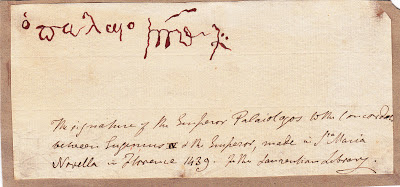 ὁ παλαιο
The signature of the Emperor Palaiologos to the Concordat
between Eugenius IV & the Emperor, made in Sta Maria
Novella in Florence 1439. In the Laurentian Library.